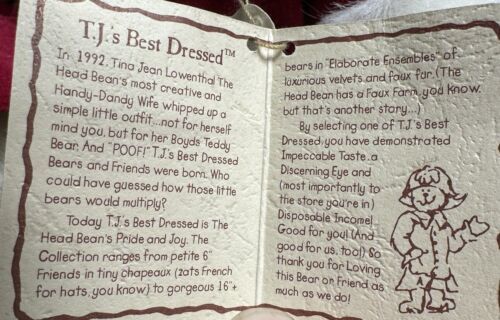 T.J.'s Best Dressed™
In 1992, Tina Jean Lowenthal The
Head Bean's most creative and
Handy-Dandy Wife whipped up a
simple little outfit...not for herself
mind you, but for her Boyds Teddy
Bear. And "POOF!" T.J.'s Best Dressed
Bears and Friends were born. Who
could have guessed how those little
bears would multiply?
Today T.J.'s Best Dressed is The
Head Bean's Pride and Joy. The
Collection ranges from petite 6"
Friends in tiny chapeaux (zats French
for hats, you know) to gorgeous 16"+
bears in "Elaborate Ensembles" of
luxurious velvets and faux fur. (The
Head Bean has a Faux Farm, you know,
but that's another story...)
By selecting one of T.J.'s Best
Dressed, you have demonstrated
Impeccable Taste, a
Discerning Eye and
(most importantly to
the store you're in)
Disposable Income!
Good for you! (And
good for us, too!) So
thank you for Loving
this Bear or Friend as
much as we do!